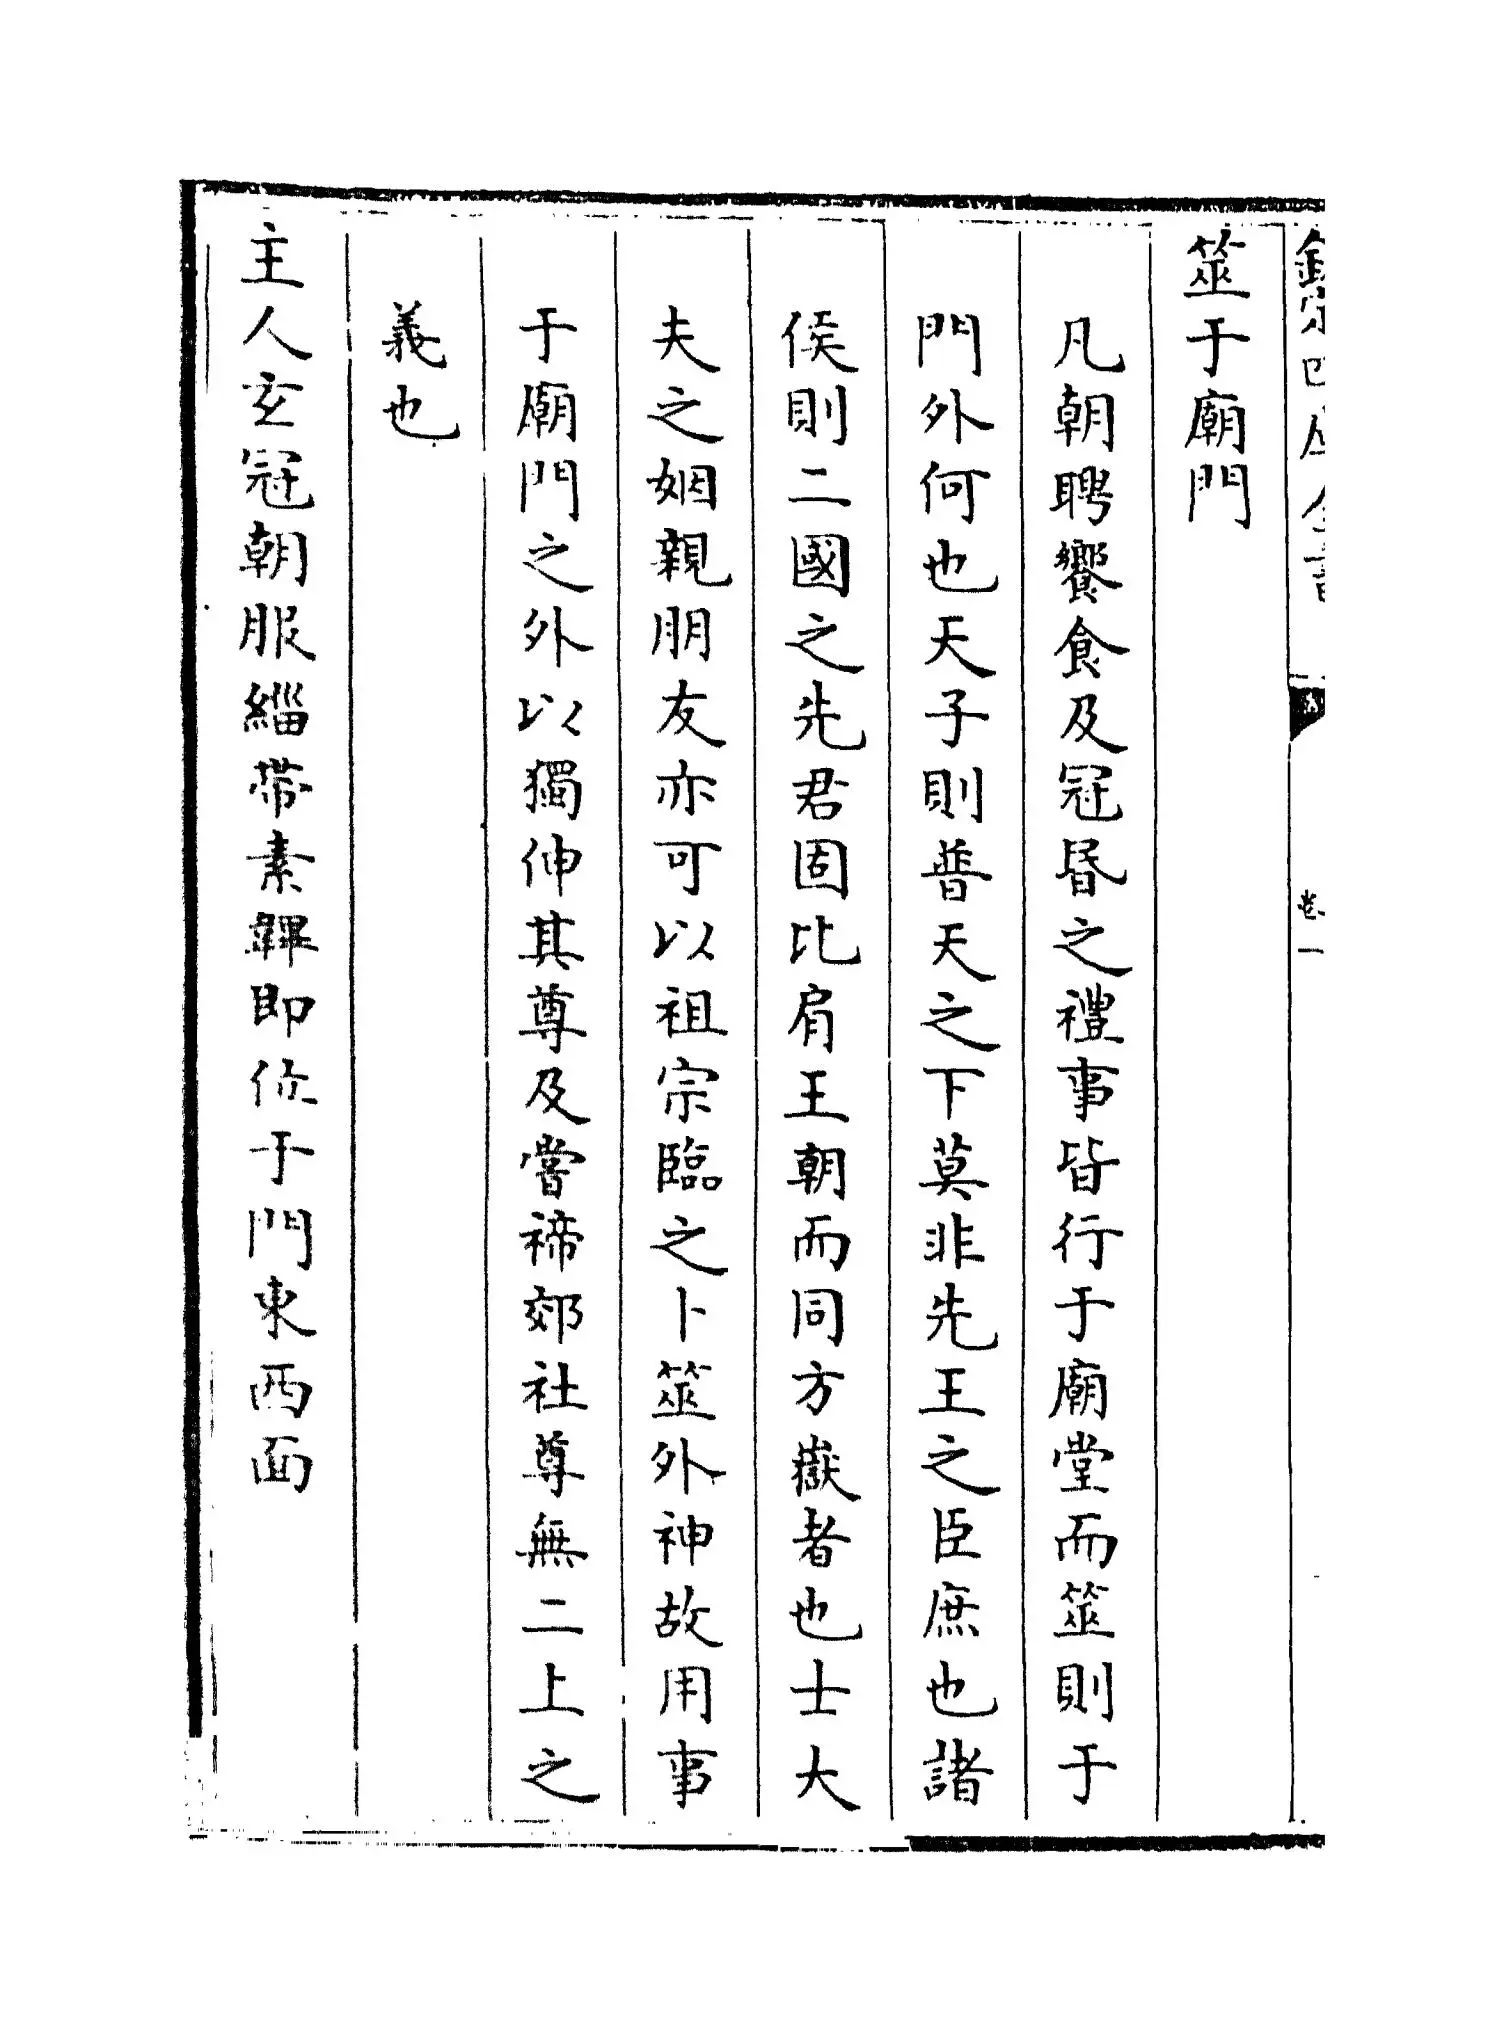 欽定四庫全書
卷一
筮于廟門
凡朝聘饗食及冠昬之禮事皆行于廟堂而筮則于
門外何也天子則普天之下莫非先王之臣庶也諸
侯則二國之先君固比肩王朝而同方嶽者也士大
夫之姻親朋友亦可以祖宗臨之卜筮外神故用事
于廟門之外以獨伸其尊及嘗禘郊社尊無二上之
義也
主人玄冠朝服緇帶素韠即位于門東西面